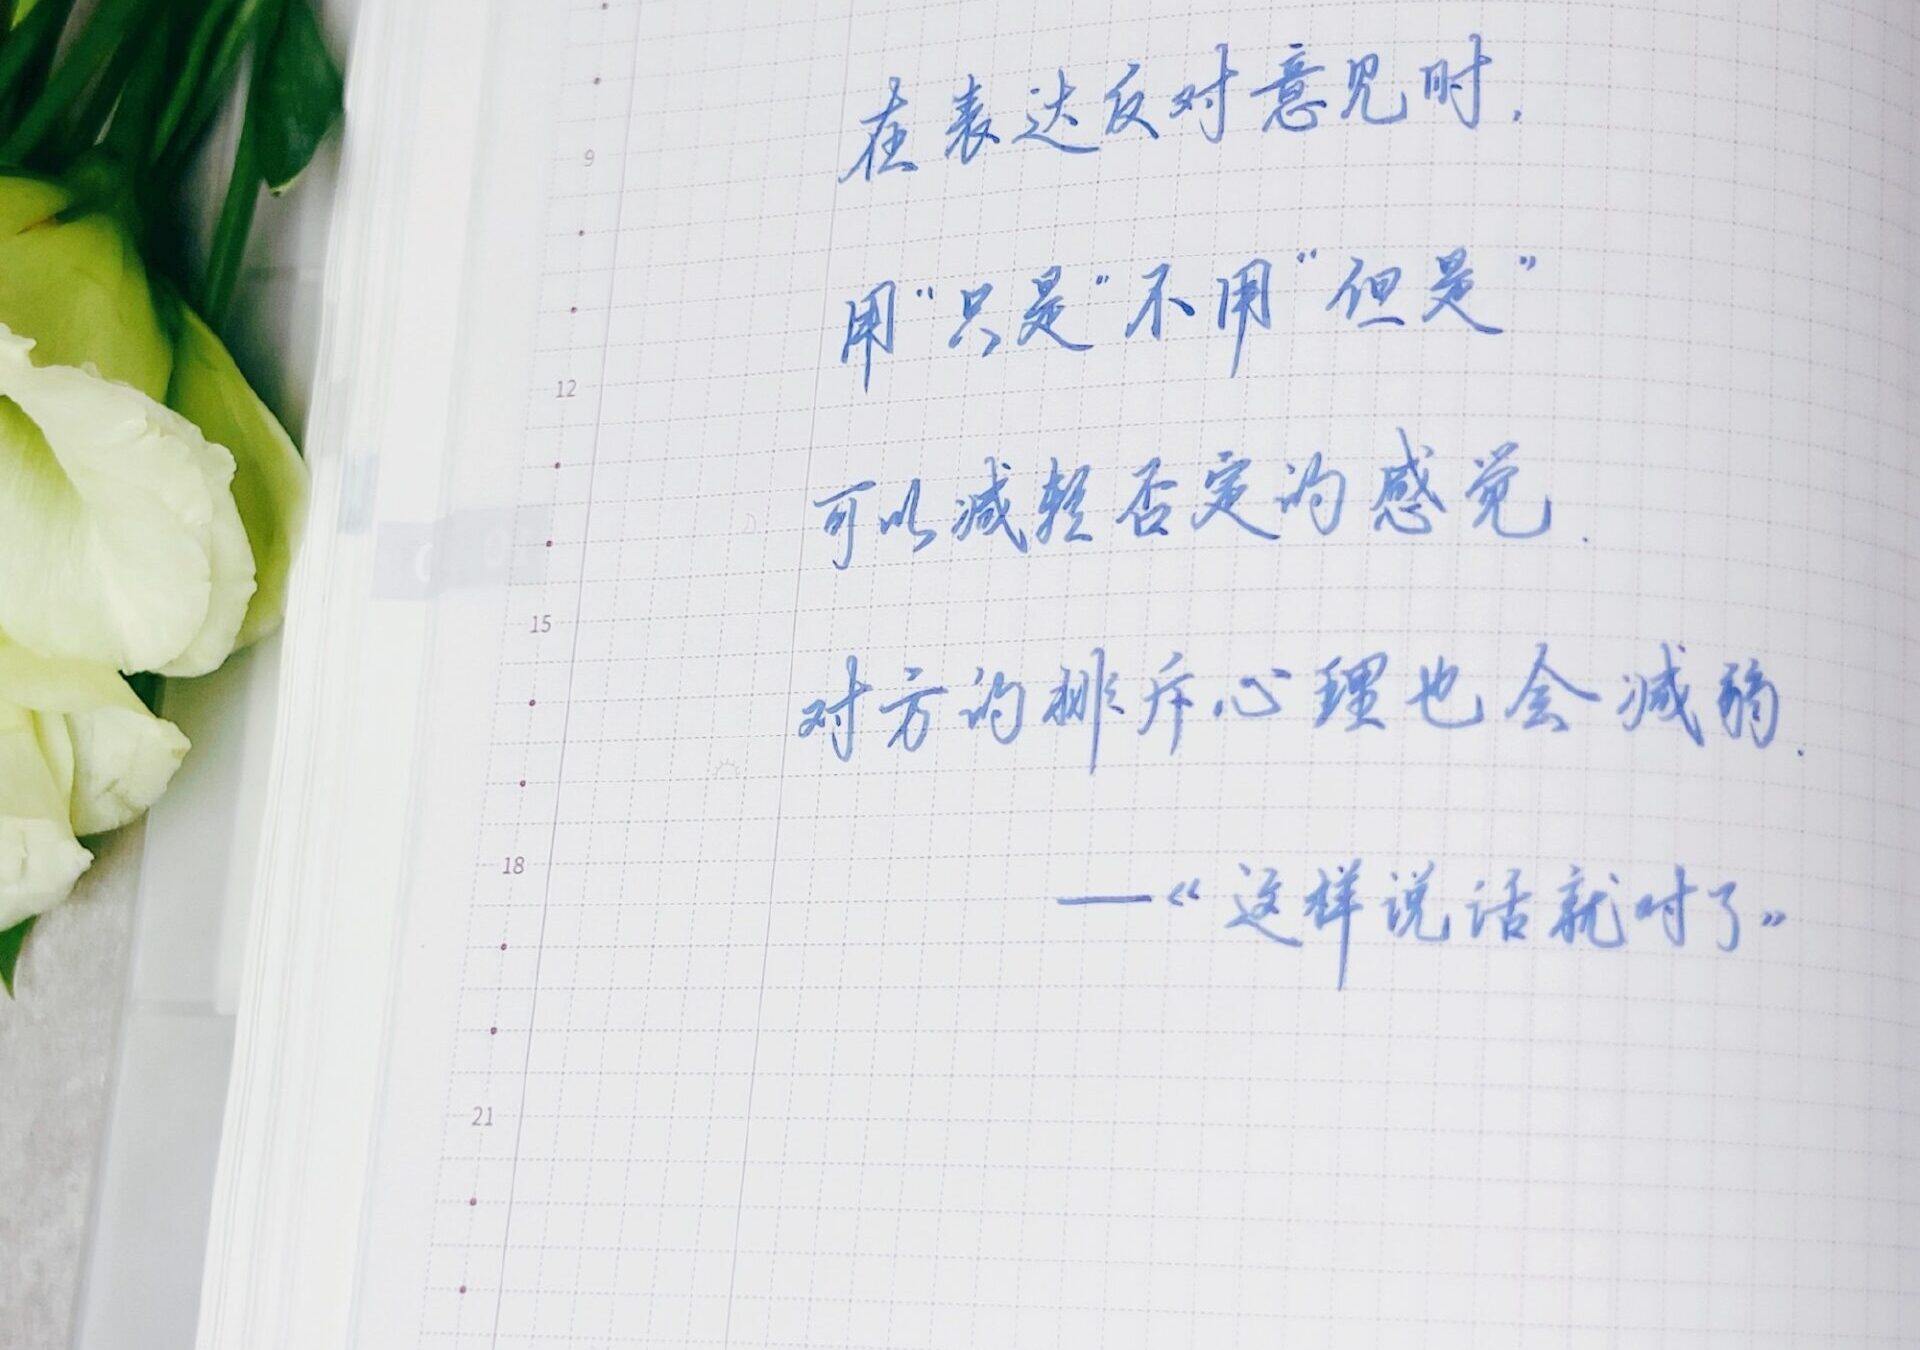 在表达反对意见时.
9
用“只是”不用“但是”
12
可以减轻否定的感觉.
15
对方的排斥心理也会减弱.
18
——《这样说话就对了》
21